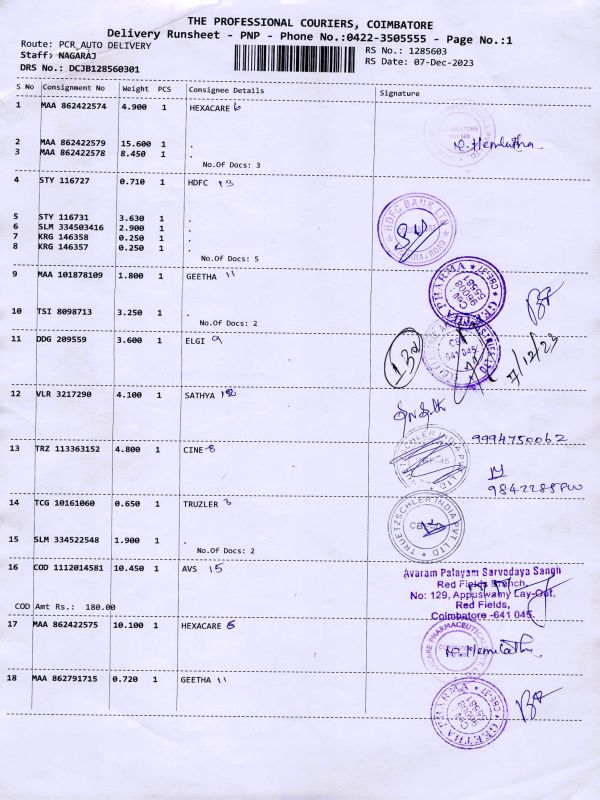 THE PROFESSIONAL COURIERS, COIMBATORE
Delivery Runsheet - PNP - Phone No.:0422-3505555 - Page No.:1
Route: PCR_AUTO DELIVERY
RS No.: 1285603
Staff: NAGARAJ
RS Date: 07-Dec-2023
DRS No.: DCJB128560301
S No Consignment No Weight PCS Consignee Details Signature
1 MAA 862422574 4.900 1 HEXACARE 6
2 MAA 862422579 15.600 1 .
3 MAA 862422578 8.450 1 .
No.Of Docs: 3
4 STY 116727 0.710 1 HDFC 13
HDFC BANK LTD
5 STY 116731 3.630 1 .
6 SLM 334503416 2.900 1 .
7 KRG 146358 0.250 1 .
8 KRG 146357 0.250 1 .
No.Of Docs: 5
9 MAA 101878109 1.800 1 GEETHA 11
GEETHA PHARMA
CBE-37
10 TSI 8098713 3.250 1 .
No.Of Docs: 2
11 DDG 209559 3.600 1 ELGI 9
641 045
7/12/23
12 VLR 3217290 4.100 1 SATHYA 12
9994750062
13 TRZ 113363152 4.800 1 CINE 8
14 TCG 10161060 0.650 1 TRUZLER 3
TRUETZSCHLER INDIA PVT. LTD
15 SLM 334522548 1.900 1 .
No.Of Docs: 2
16 COD 1112014581 10.450 1 AVS 15
Avaram Palayam Sarvodaya Sangh
Red Fields Branch,
No: 129, Appuswamy Lay-Out,
Red Fields,
Coimbatore -641 045.
COD Amt Rs.: 180.00
17 MAA 862422575 10.100 1 HEXACARE 6
18 MAA 862791715 0.720 1 GEETHA 11
GEETHA PHARMA
CBE-37